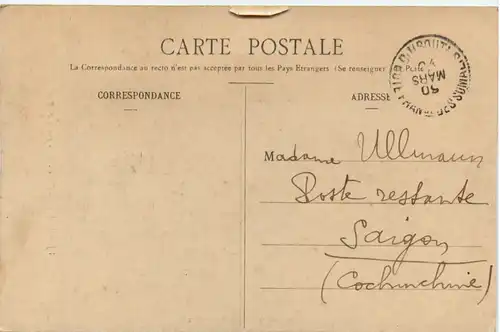 CARTE POSTALE
La Correspondance au recto n'est pas acceptée par tous les Pays Etrangers (Se renseigner
CORRESPONDANCE
ADRESSE
DJIBOUTI
MARS
Madame Ullmann
Poste restante
Saigon
(Cochinchine)